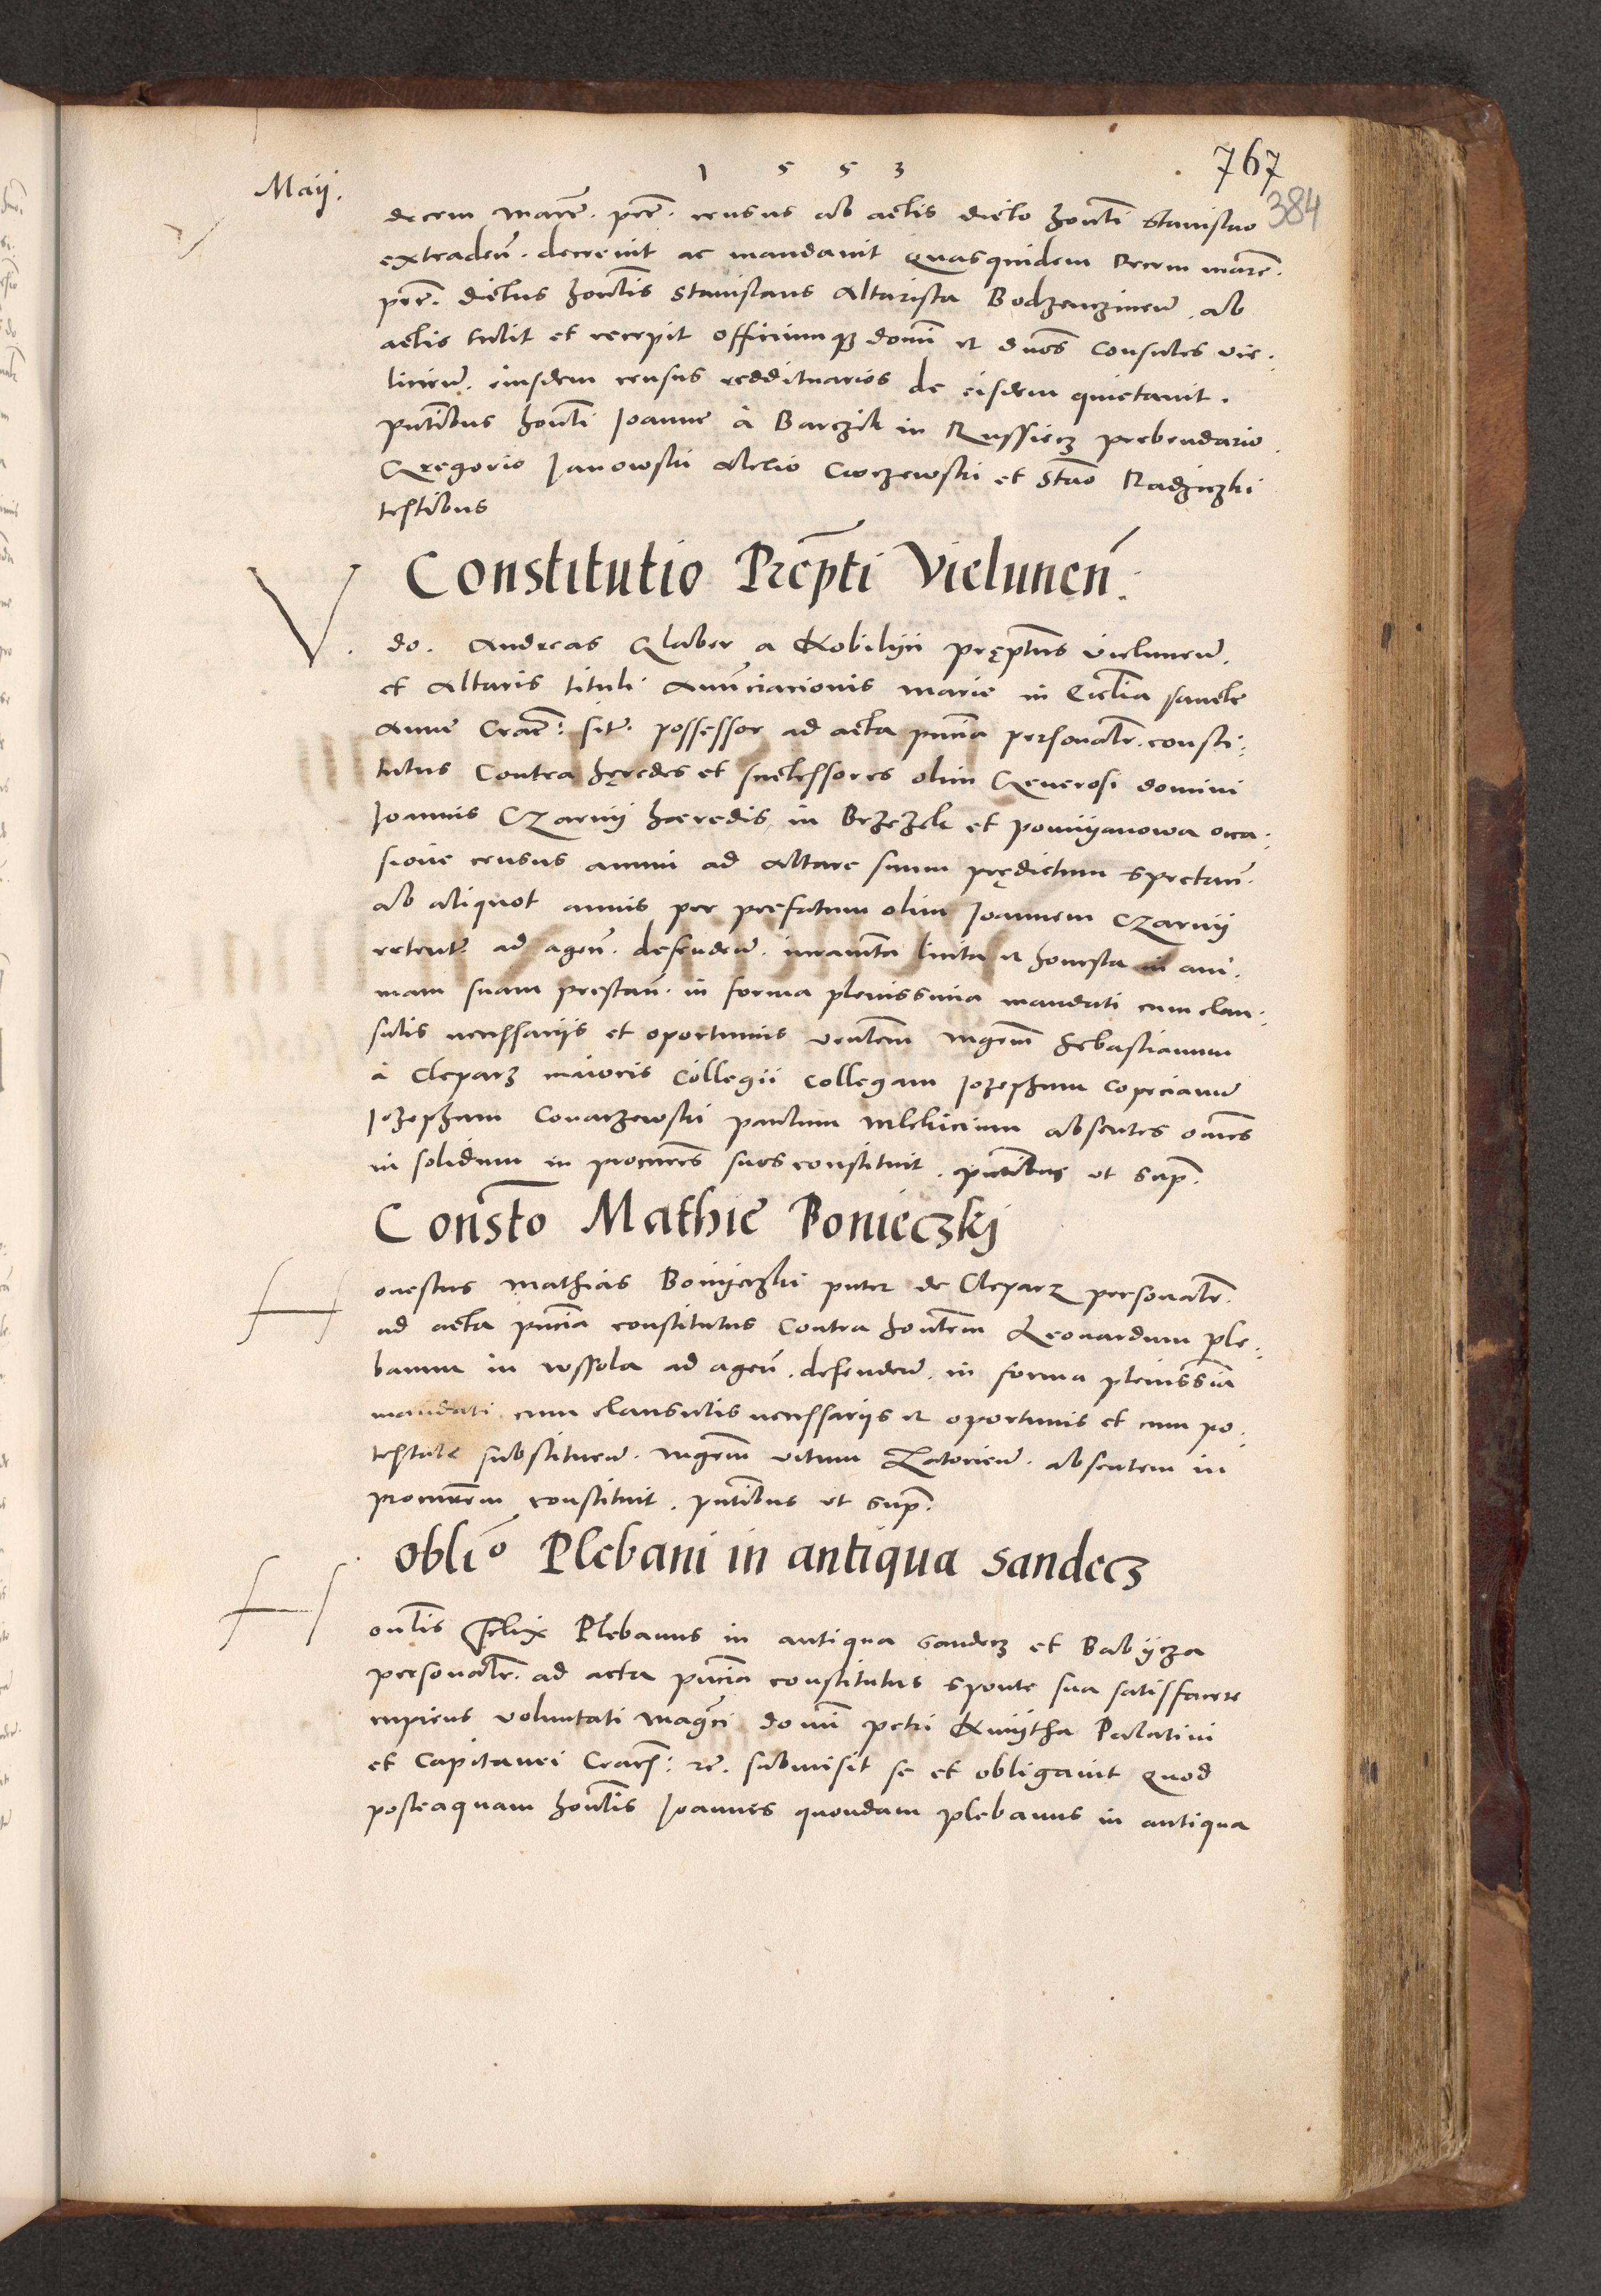 1553
767
Maij.
384
decem marc̄. pec̄. census ab actis dicto hon̄li Stanislao
extraden̄. decrevit ac mandavit quasquidem decem marc̄.
pec̄. dictus hon̄lis Stanislaus Altarista Bodzenczinen̄. ab
actis tulit et recepit officiumq̧ domi et dnos consules vie:
licien̄. eiusdem census reddituarios de eisdem quietavit.
pn̄tibus hon̄li Joanne à Barczik in Russiecz prebendario
Gregorio Janowski Alexio Cworzewski et Stāo Radziczki
testibus
Constitutio Prep̄ti Vielunen̄.
V. do. Andreas Glaber a Kobiliin pręp̄tus vielunen̄.
et Altaris tituli Annūciacionis marie in Ecc̄lia sancte
Anne Crac̄: sit̄. possessor ad acta pn̄cia personalr̄. consti:
tutus Contra hęredes et successores olim Generosi domini
Joannis Czarnij hæredis in Brzezek et pomijanowa occa:
sione census annui ad Altare suum prędictum spectan̄.
ab aliquot annis per prefatum olim Joannem Czarnij
retent̄. ad agen̄. defenden̄. iuram̄ta licita et honesta in ani:
mam suam prestan̄. in forma plenissima mandati cum clau:
sulis necessariis et oportunis ven̄lem mgr̄m Sebastianum
à Cleparz maioris Collegii Collegam Jozephum Coprcianū
Jozephum Conarzewski paulum Mlekicium absentes om̄es
in solidum in procur̄es suos constituit. pn̄tibus ut sup̄.
Cons̄to Mathie Bonieczkj
H onestus Mathias Bonijeczki puter de Cleparz personalr̄.
ad acta pn̄cia constitutus Contra hon̄lem Leonardum ple:
banum in wssola ad agen̄. defenden̄. in forma plenissi̅a
mandati cum clausulis necessariis et oportunis et cum po:
testate substituen̄. mgr̄m vitum Zatorien̄. absentem in
procur̄em constituit. pn̄tibus ut sup̄.
obli̅o Plebani in antiqua Sandecz
H on̄lis Felix Plebanus in antiqua Sandecz et Babijcza
personalr̄. ad acta pn̄cia constitutus sponte sua satisfacere
cupiens voluntati Mag̅ci domi petri Kmijtha Palatini
et Capitanei Crac̄: rc̄. submisit se et obligavit quod
posteaquam hon̄lis Joannes quondam plebanus in antiqua